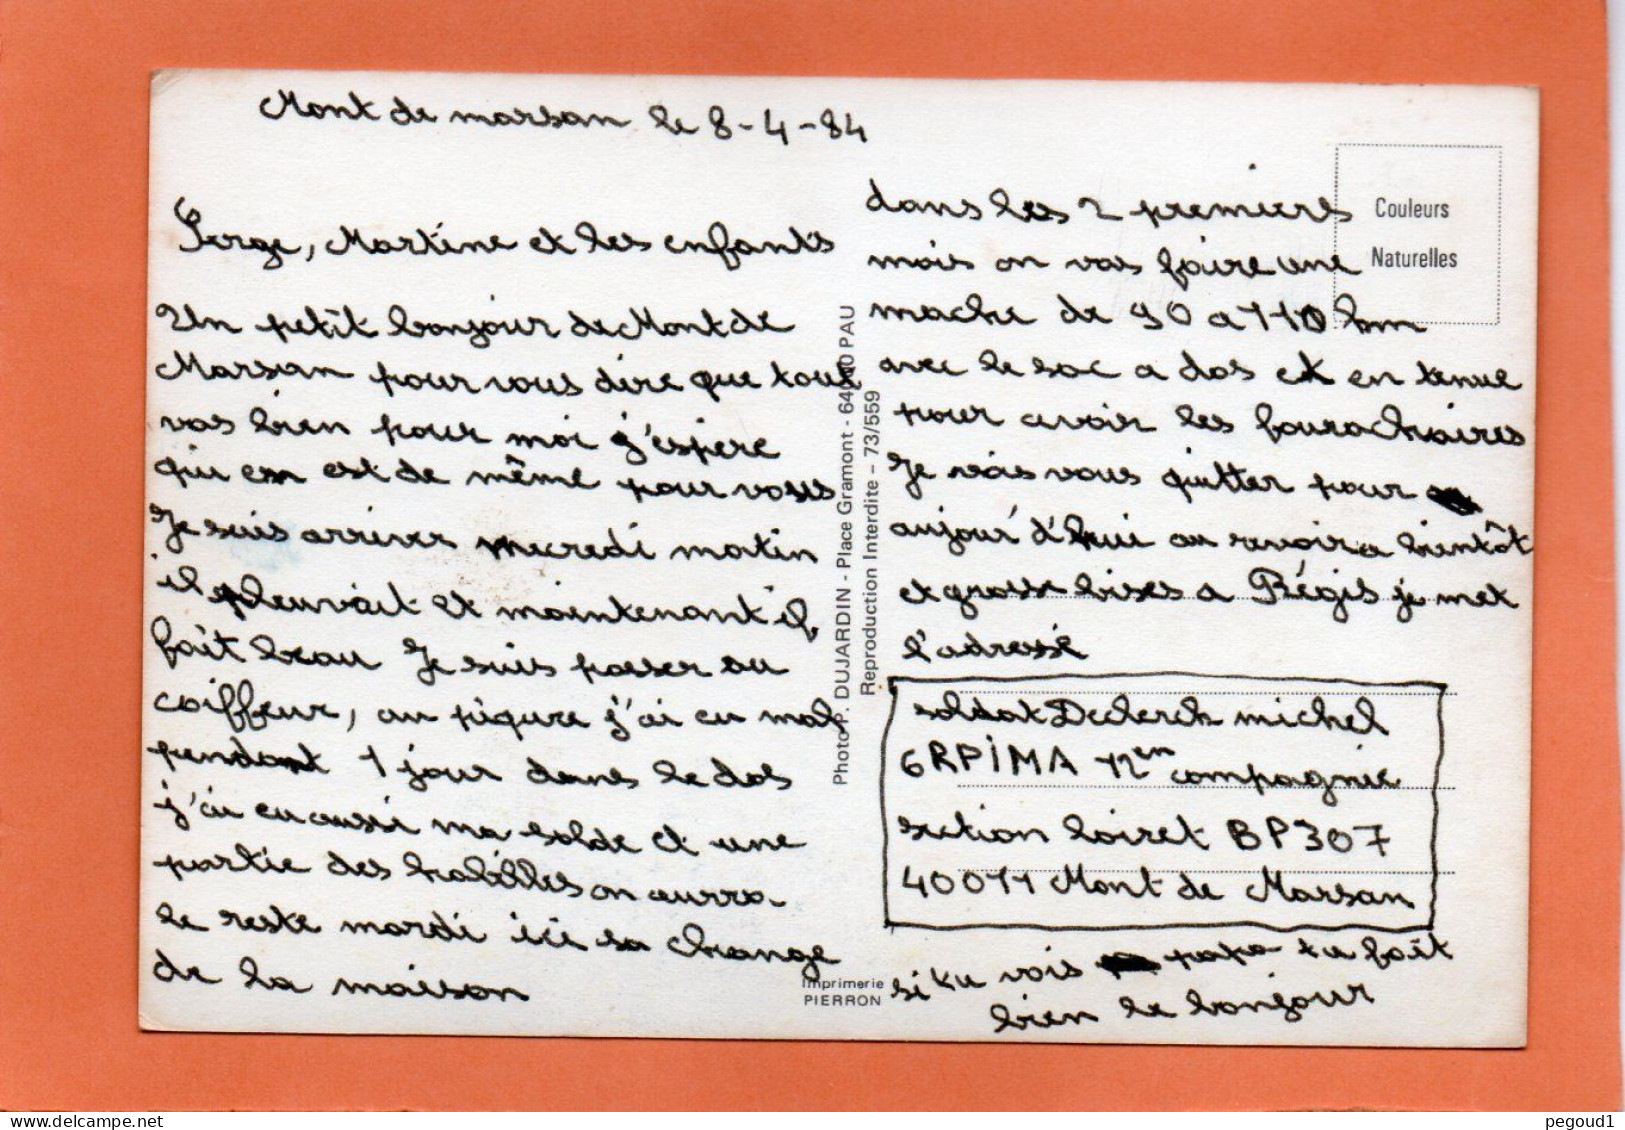 Mont de marsan le 8-4-84
Serge, Martine et les enfants
Un petit bonjour de Mont de
Marsan pour vous dire que tout
vas bien pour moi j'espere
qui en est de même pour vous
Je suis arriver mecredi matin
il pleuvait et maintenant il
fait beau Je suis passer au
coiffeur, au piqure j'ai eu mal
pendant 1 jour dans le dos
j'ai eu aussi ma solde et une
partie des habilles on aurra
le reste mardi ici sa change
de la maison
dans les 2 premiers
mois on vas faire une
mache de 90 a 110 km
avec le sac a dos et en tenue
pour avoir les fourachaires
Je vais vous quitter pour
aujour d'hui au revoir a bientôt
et grosse bises a Régis je met
l'adresse
soldat Declerck michel
6RPIMA 12en compagnie
section loiret BP307
40011 Mont de Marsan
si tu vois papa tu fait
bien le bonjour
Couleurs
Naturelles
Photo P. DUJARDIN - Place Gramont - 64000 PAU
Reproduction Interdite - 73/559
Imprimerie
PIERRON
pegoud1